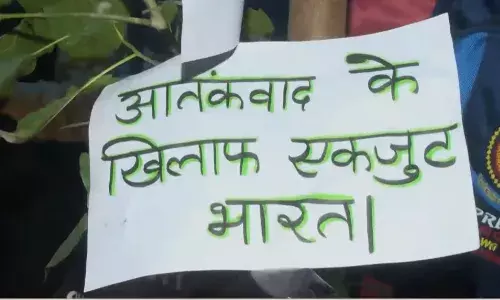 आतंकवाद के
खिलाफ एकजुट
भारत।